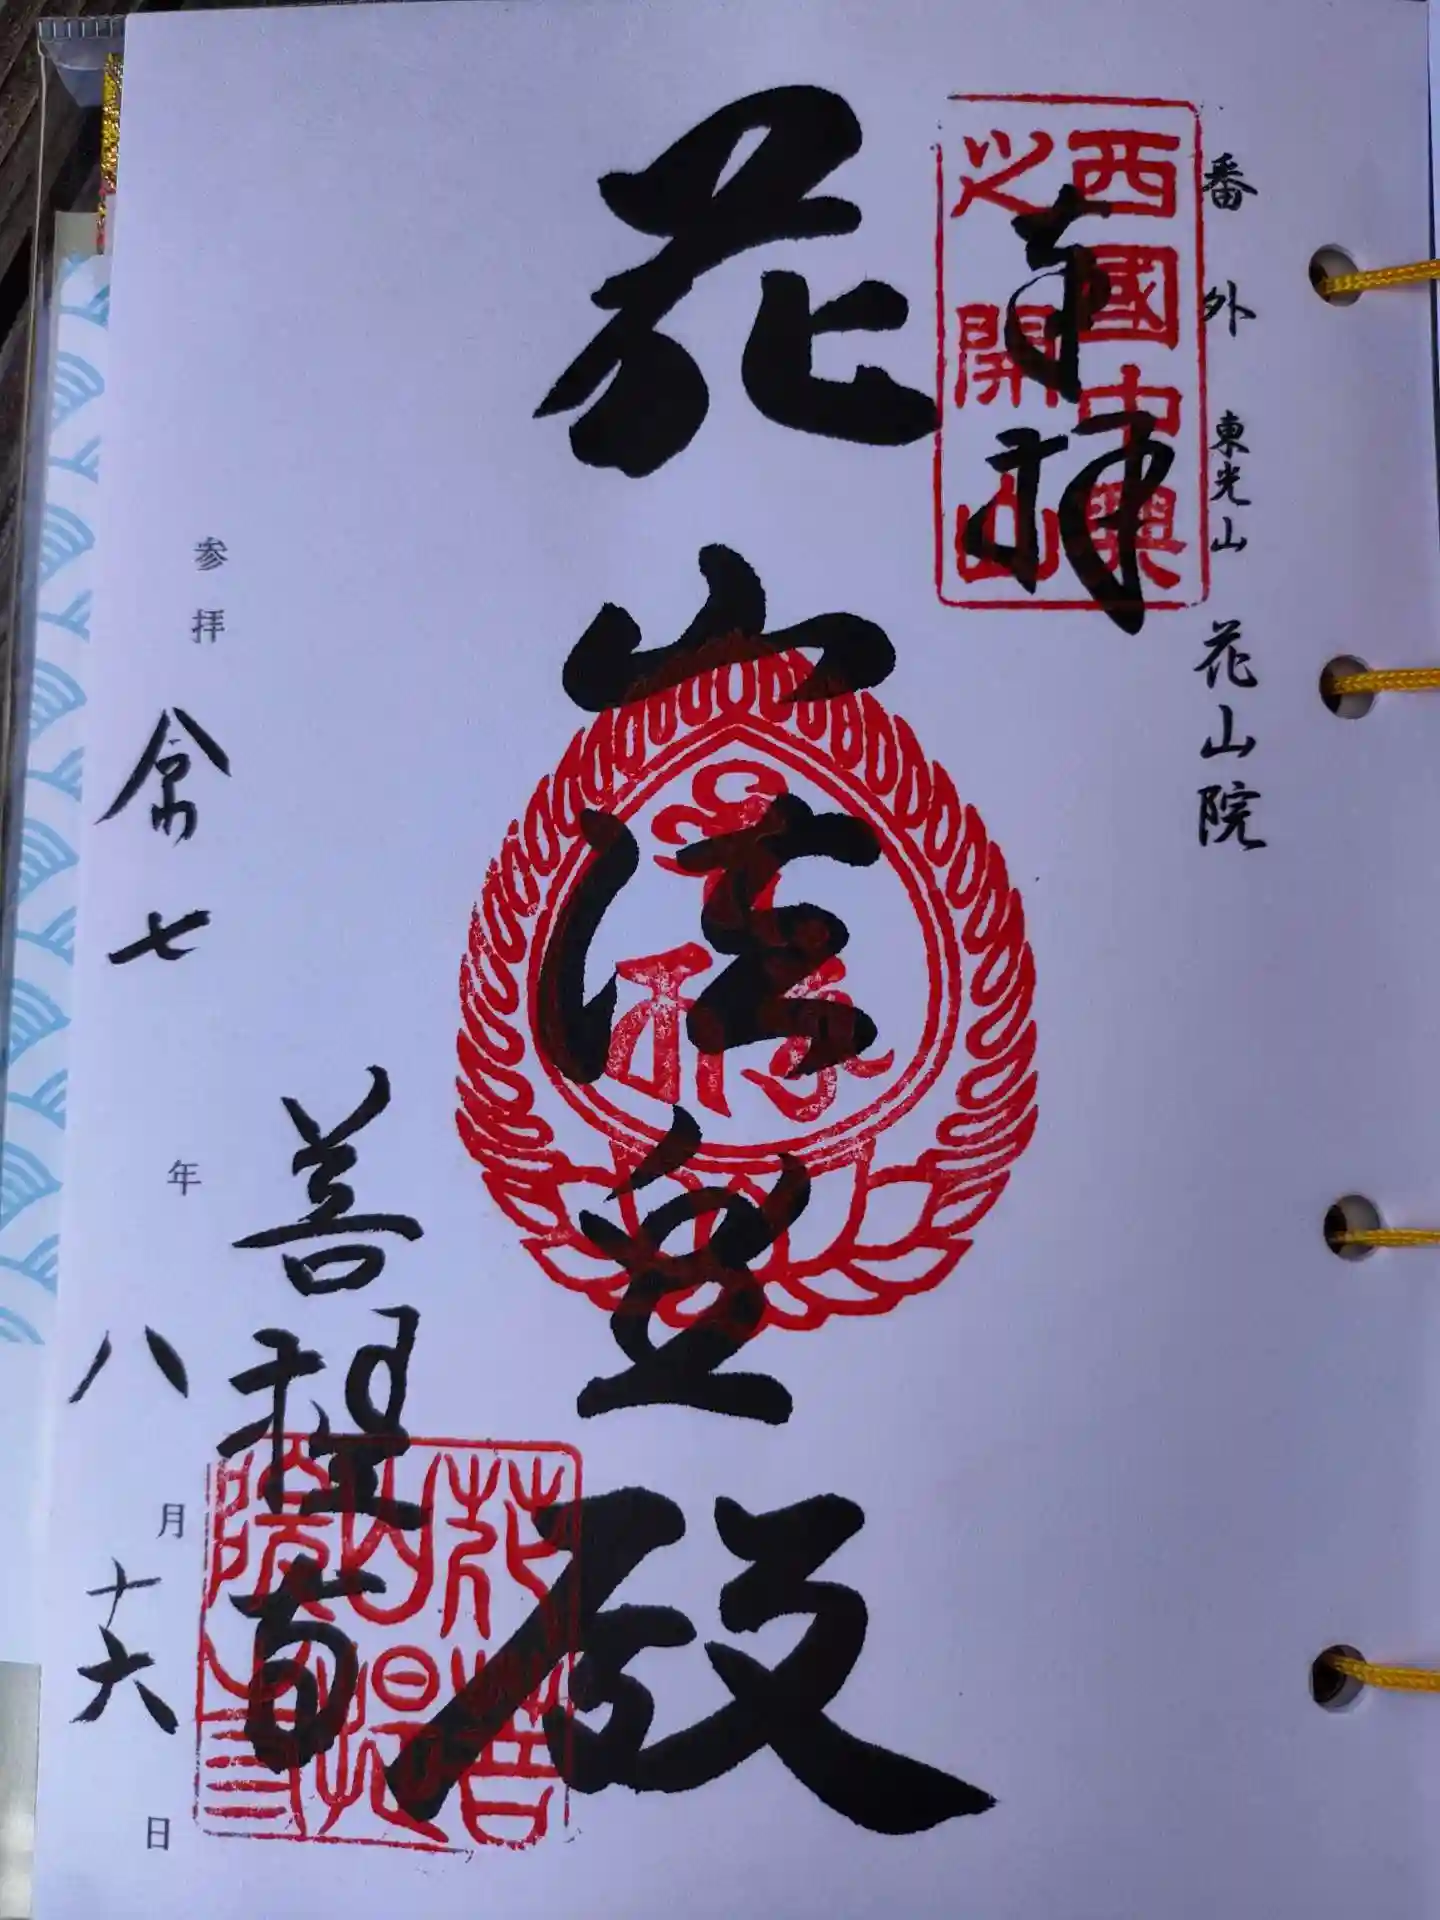 番外 東光山 花山院
西國中興
之開山
奉拝
花山法皇殿
菩提寺
花山院
菩提寺
参拝 令七年八月十六日